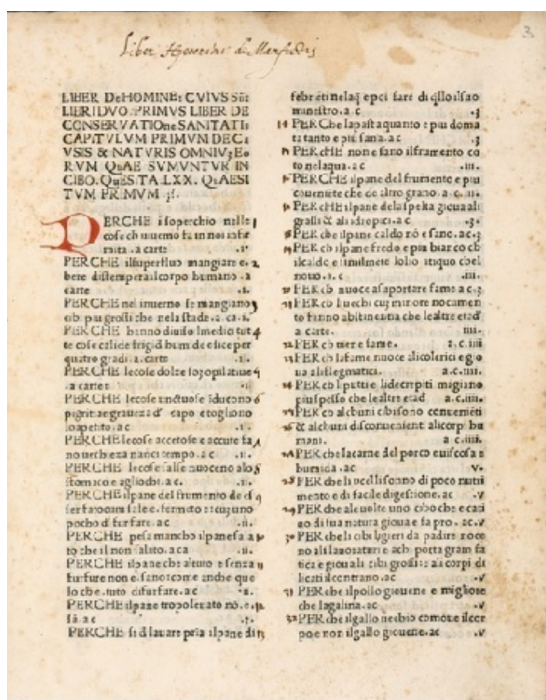 3
Liber Hyeronimi de Manfredis
LIBER DeHOMINE: CVIVS Sūt
LIBRI DVO. PRIMVS LIBER DE
CONSERVATIOne SANITATIS
CAPITVLVM PRIMVM DE CA
VSIS & NATVRIS OMNIVꝫ Eo
RVM QuAE SVMVNTVR IN
CIBO. QuESITA LXX. QuAESI
TVM PRIMVM
PERCHE il soperchio nelle
cose che viuemo fa in noi infir
mita . a carte .1.
PERCHE il superfluo mangiare e. 2
bere distempera il corpo humano . a
carte
PERCHE nel inuerno se mangiano 3
cibi piu grossi che nella stade. a ca. 1.
PERCHE hanno diuiso li medici tut 4
te cose calide frigid humide e sicce per
quatro gradi. a carte .1.
PERCHE le cose dolce sono opilatiue 5
. a carte
PERCHE le cose unctuose iducono 6
pigritia e grauezza d' capo e togliono
lo apetito. a c .1.
PERCHE le cose accetose e accute fa 7
no uechieza nanci tempo. a c .1.
PERCHE le cose salse nuoceno alo 8
stomaco e agliochi. a c.
PERCHE il pane del frumento de es 9
ser fato con sale e. fermēto e cū uno
pocho d' furfare. a c .ii.
PERCHE pesa mancho il pane sala
to che il non salito. a c a .ii.
PERCHE il pane che al tuto e senza
furfure non e. sano: come anche que
lo che. tuto e furfare. a c .ii.
PERCHE il pane tropo leuato nō. e.
sā. a c
PERCHE si d' lauare pria il pane di
febrēti nelaq̄ e poi fare di q̄llo il suo
ministro. a c .3
14 PERChe la pasta quanto e piu doma
ta tanto e piu sana. a c .3
PERCHE non e sano il framento co
to nel aqua. a c .iii.
PERCHE il pane del frumento e piu
conueniente che de altro grano. a c. iii.
PERCHE il pane de la spelta gioua ali
grassi & ali idropici. a c .3.
PER che il pane caldo nō e sano. a c. 3
PER ch il pane fredo e piu biancho ch
il caldo: e similmente lolio antiquo che l
nouo. a c .iii.
PER ch nuoce a saportare fame a c. 3
PER ch li uechi cuz minore nocumen
to fanno abstinentia che le altre etad'
a carte. iiii.
PER ch uiene fame. a. c. iiii
PER ch la fame nuoce ali colerici e gio
ua ali flegmatica. a c. iiii.
PER ch li putti e li decrepiti magiano
piu spesso che le altre etad a c. iiii.
PER ch alchuni cibi sono conuenieti
& alchuni disconuenient ali corpi hu
mani. a c iiii.
PER che la carne del porco e uiscosa e
humida . a c v.
PER che li ucelli sonno di poco nutri
mento e di facile digestione. a c .v
PER che ale uolte uno cibo che e cati
uo di sua natura gioua e fa pro. a c. v
PER che li cibi ligieri da padire noce
no ali lauoratori e a ch porta gram fa
tica e gioua li cibi grossi: e ali corpi de
licati il contrario. a c .v
PER che il pollo giouene e migliore
che la galina. a c .v
PER che il gallo uechio como e il cer
po e non il gallo giouene. a c .v